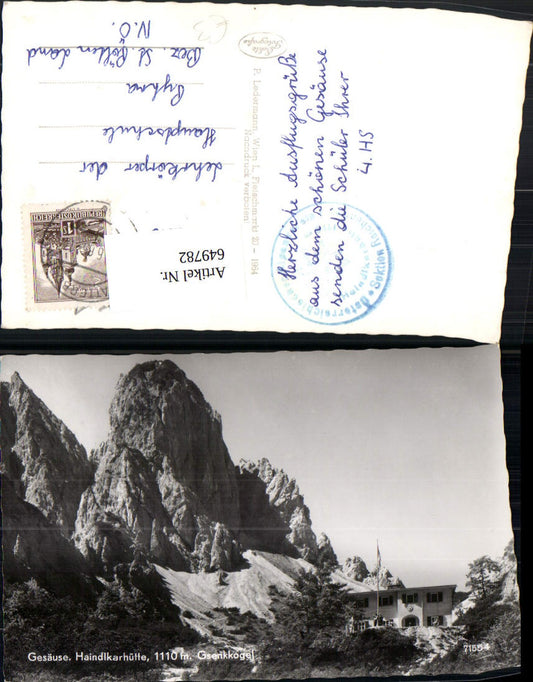 Herzliche Ausflugsgrüße
aus dem schönen Gesäuse
senden die Schüler Ihrer
4. HS
P. Ledermann, Wien I., Fleischmarkt 20 – 1964
Nachdruck verboten!
Lehrkörper der
Hauptschule
Pyhra
Bez. St. Pölten Land
N.Ö.
REPUBLIK ÖSTERREICH
Artikel Nr.
649782
Gesäuse. Haindlkarhütte, 1110 m. Gsenkkogel